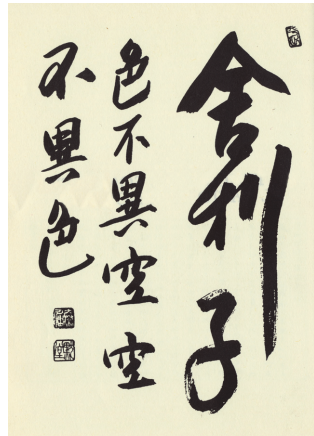 舍利子
色不異空空
不異色